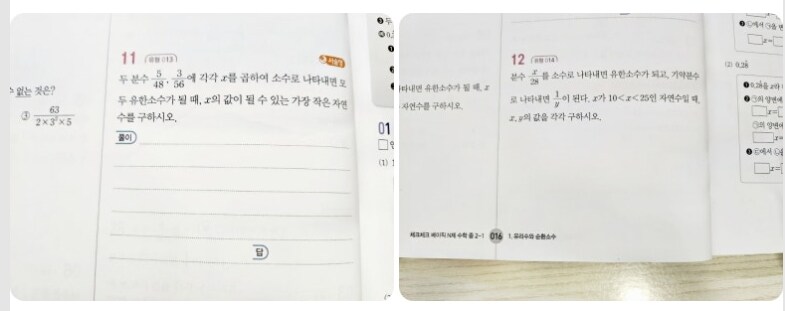 없는 것은?
③ 63/(2×3²×5)
11 유형 013
두 분수 5/48, 3/56에 각각 x를 곱하여 소수로 나타내면 모
두 유한소수가 될 때, x의 값이 될 수 있는 가장 작은 자연
수를 구하시오.
풀이
답
01
(1)
나타내면 유한소수가 될 때, x
자연수를 구하시오.
12 유형 014
분수 x/28를 소수로 나타내면 유한소수가 되고, 기약분수
로 나타내면 1/y이 된다. x가 10<x<25인 자연수일 때,
x, y의 값을 각각 구하시오.
체크체크 베이직 N제 수학 중 2-1 016 1. 유리수와 순환소수
□x=
(2)
❶
❷
□x=
❸
□x=